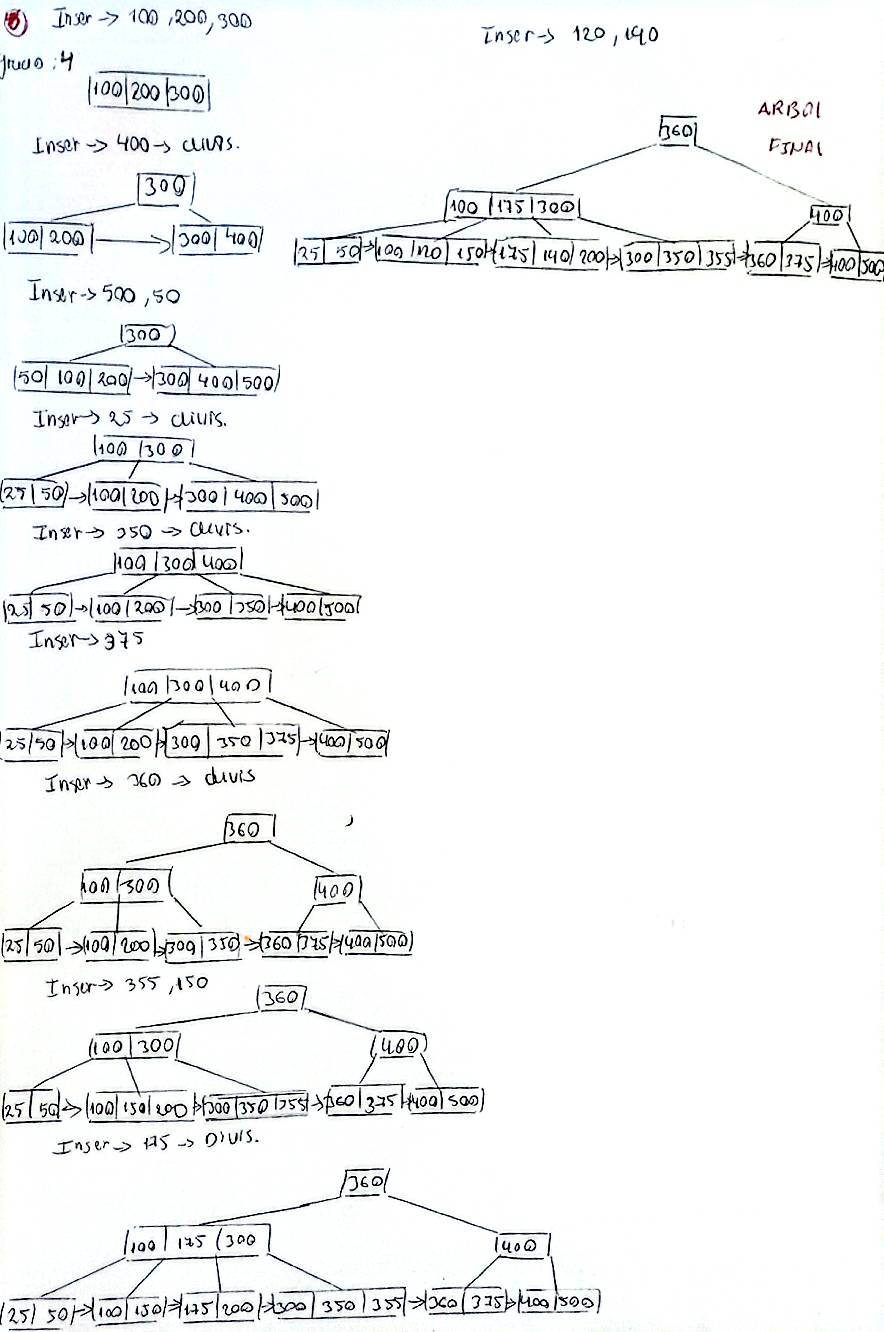 5 Inser → 100, 200, 300
grado: 4
100 | 200 | 300
Inser → 400 → divis.
300
100 | 200 → 300 | 400
Inser → 500, 50
300
50 | 100 | 200 → 300 | 400 | 500
Inser → 25 → divis.
100 | 300
25 | 50 → 100 | 200 → 300 | 400 | 500
Inser → 350 → divis.
100 | 300 | 400
25 | 50 → 100 | 200 → 300 | 350 → 400 | 500
Inser → 375
100 | 300 | 400
25 | 50 → 100 | 200 → 300 | 350 | 375 → 400 | 500
Inser → 360 → divis
360
100 | 300
400
25 | 50 → 100 | 200 → 300 | 350 → 360 | 375 → 400 | 500
Inser → 355, 150
360
100 | 300
400
25 | 50 → 100 | 150 | 200 → 300 | 350 | 355 → 360 | 375 → 400 | 500
Inser → 175 → Divis.
360
100 | 175 | 300
400
25 | 50 → 100 | 150 → 175 | 200 → 300 | 350 | 355 → 360 | 375 → 400 | 500
Inser → 120, 190
ARBOl
FINAl
360
100 | 175 | 300
400
25 | 50 → 100 | 120 | 150 → 175 | 190 | 200 → 300 | 350 | 355 → 360 | 375 → 400 | 500